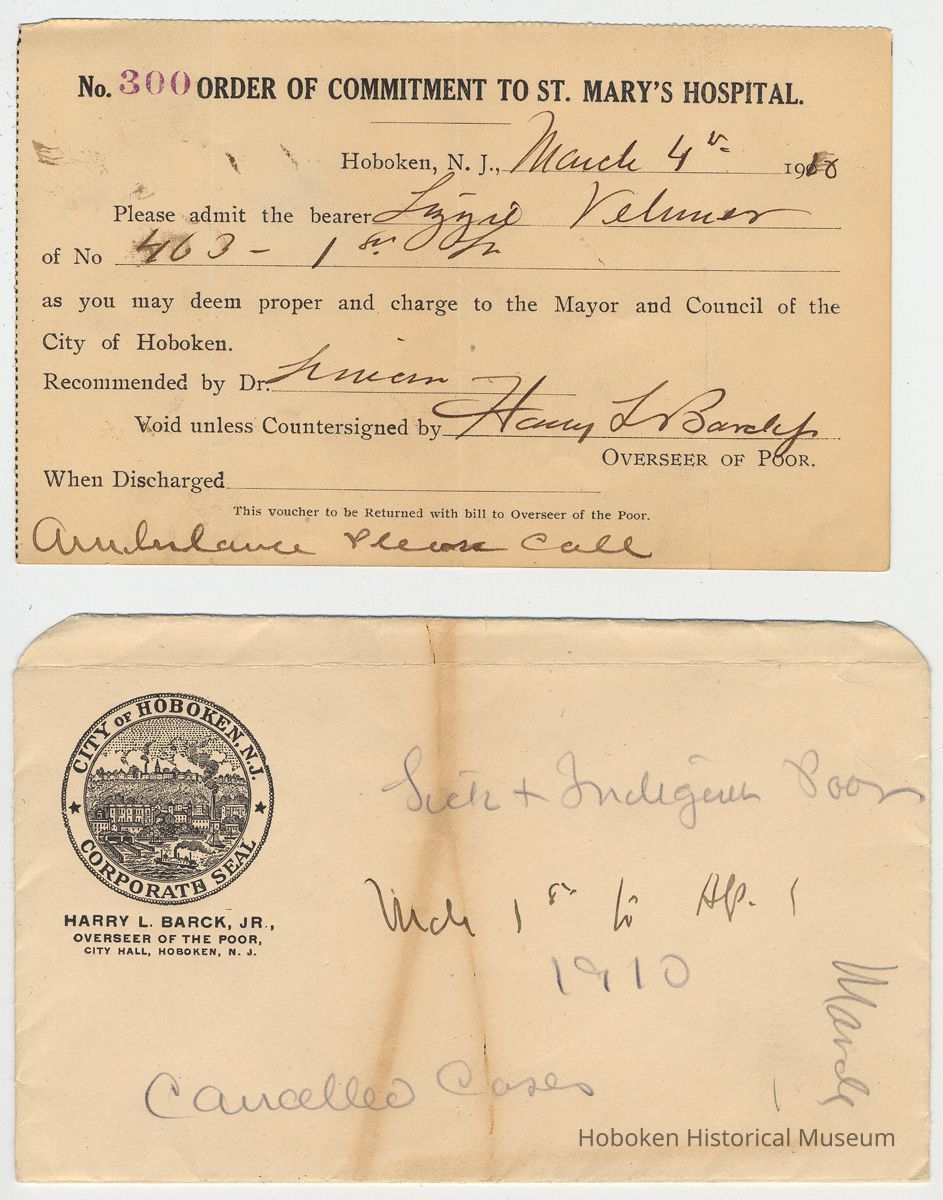 No. 300 ORDER OF COMMITMENT TO ST. MARY'S HOSPITAL.
Hoboken, N. J., March 4th 1910
Please admit the bearer Lizzie
of No 463 - 1st St
as you may deem proper and charge to the Mayor and Council of the
City of Hoboken.
Recommended by Dr.
Void unless Countersigned by Harry L Barck Jr
OVERSEER OF POOR.
When Discharged
This voucher to be Returned with bill to Overseer of the Poor.
Ambulance Please Call
CITY OF HOBOKEN, N.J.
CORPORATE SEAL
HARRY L. BARCK, JR.,
OVERSEER OF THE POOR,
CITY HALL, HOBOKEN, N. J.
Sick + Indigent Poor
Mch 1st to Ap. 1
1910
March
Cancelled Cases
Hoboken Historical Museum